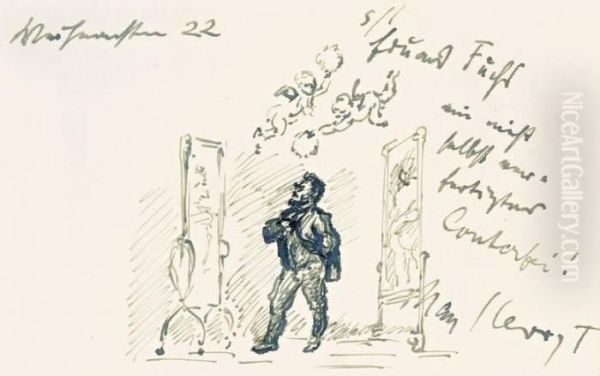 Weihnachten 22
s/l
Eduard Fuchs
ein nicht
selbst ver-
fertigtes
Conterfei!
Max Slevogt
NiceArtGallery.com